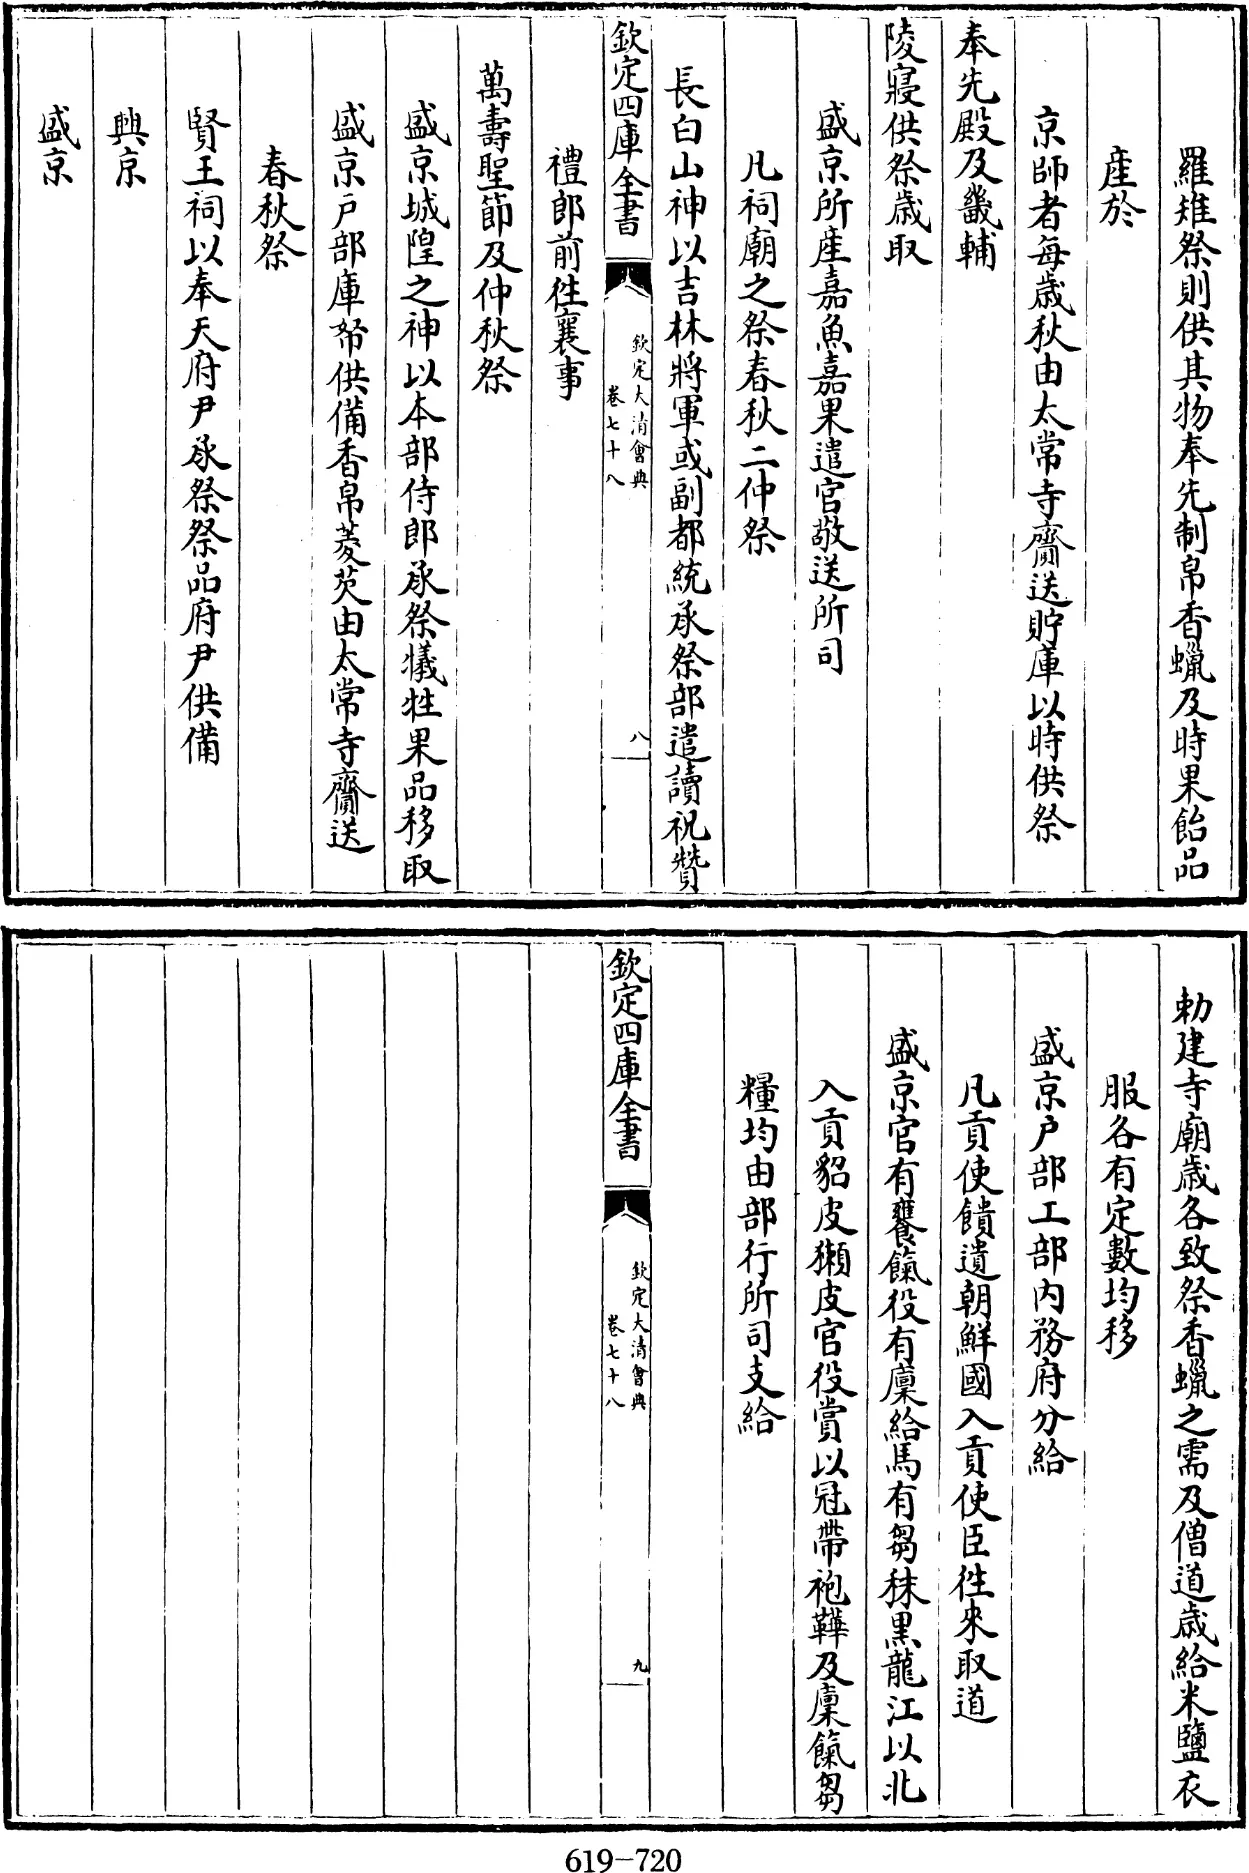 羅雉祭則供其物奉先制帛香蠟及時果飴品
産於
京師者每歲秋由太常寺齎送貯庫以時供祭
奉先殿及畿輔
陵寢供祭歲取
盛京所産嘉魚嘉果遣官敬送所司
凡祠廟之祭春秋二仲祭
長白山神以吉林將軍或副都統承祭部遣讀祝贊
欽定四庫全書
欽定大清會典
卷七十八
八
禮郎前徃襄事
萬壽聖節及仲秋祭
盛京城隍之神以本部侍郎承祭犧牲果品移取
盛京戶部庫帑供備香帛菱芡由太常寺齎送
春秋祭
賢王祠以奉天府尹承祭祭品府尹供備
興京
盛京
勅建寺廟歲各致祭香蠟之需及僧道歲給米鹽衣
服各有定數均移
盛京戶部工部內務府分給
凡貢使饋遺朝鮮國入貢使臣徃來取道
盛京官有饔餼役有廩給馬有芻秣黑龍江以北
入貢貂皮獺皮官役賞以冠帶袍鞾及廩餼芻
糧均由部行所司支給
欽定四庫全書
欽定大清會典
卷七十八
九
619-720